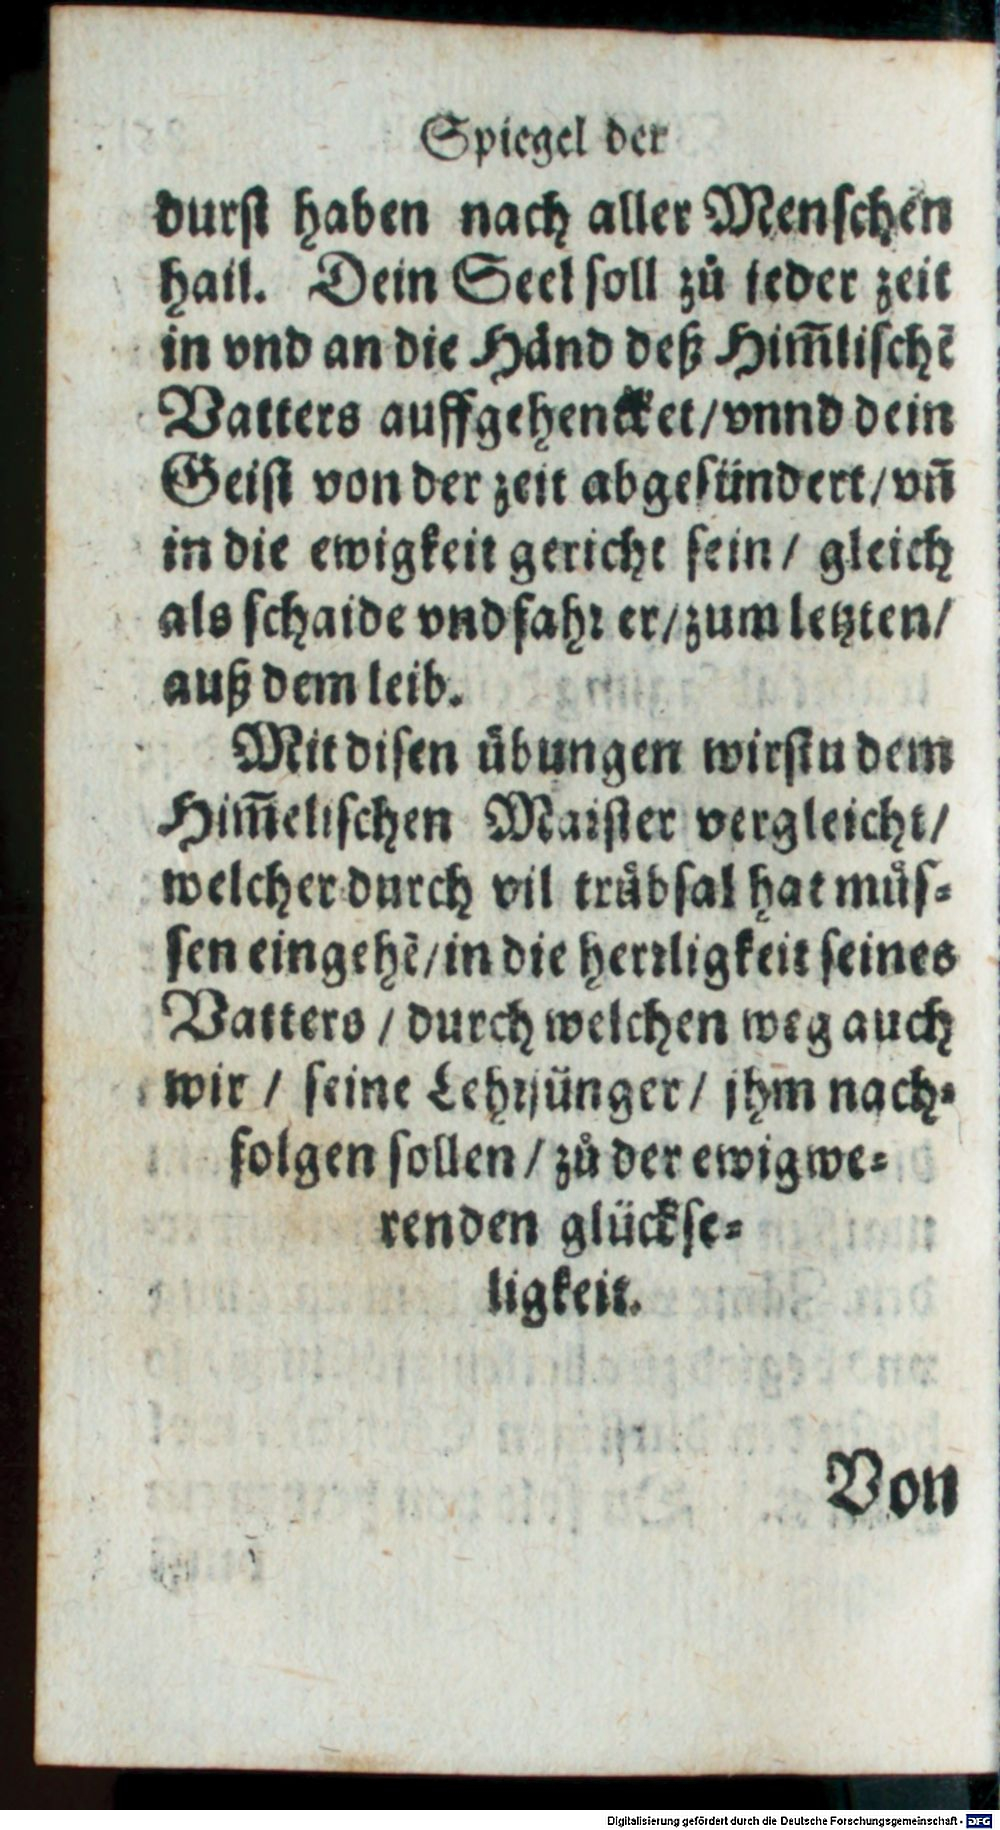 Spiegel der
durst haben nach aller Menschen
hail. Dein Seel soll zů jeder zeit
in vnd an die Händ deß Him̃lischẽ
Vatters auffgehencket/vnnd dein
Geist von der zeit abgesündert/vñ
in die ewigkeit gericht sein/ gleich
als schaide vnd fahr er/zum letzten/
auß dem leib.
Mit disen übungen wirstu dem
Him̃elischen Maister vergleicht/
welcher durch vil trůbsal hat můs-
sen eingehẽ/in die herrligkeit seines
Vatters / durch welchen weg auch
wir / seine Lehrjünger/ jhm nach-
folgen sollen / zů der ewigwe-
renden glückse-
ligkeit.
Von
Digitalisierung gefördert durch die Deutsche Forschungsgemeinschaft - DFG